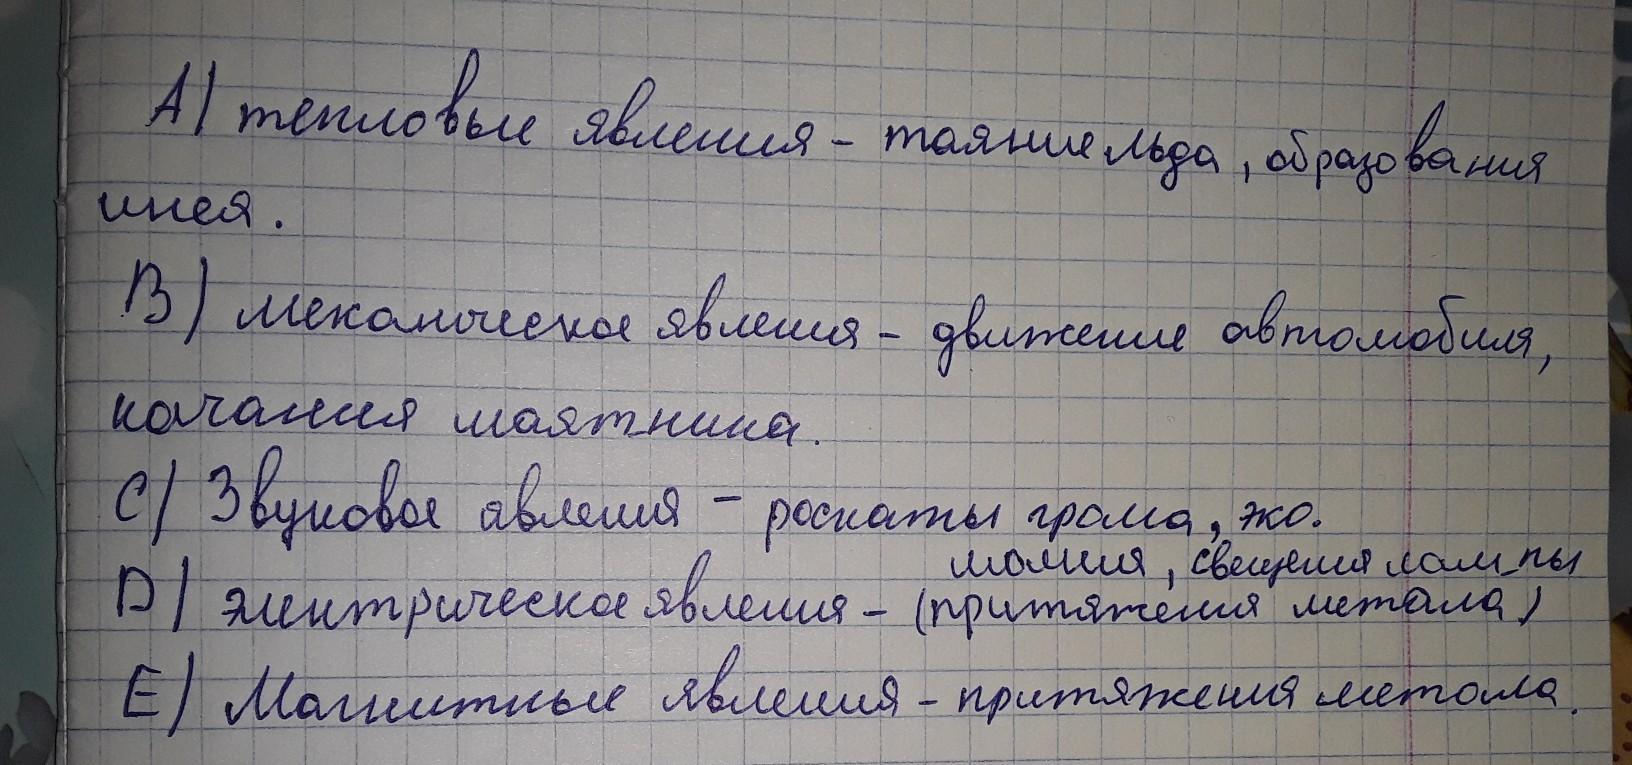 А) тепловые явления - таяние льда, образования
инея.
В) механическое явления - движение автомобиля,
качания маятника.
С) Звуковое явления - роскаты грома, эхо.
молния, свещения лампы
D) электрическое явления - (притяжения метала)
Е) Магнитные явления - притяжения метала.